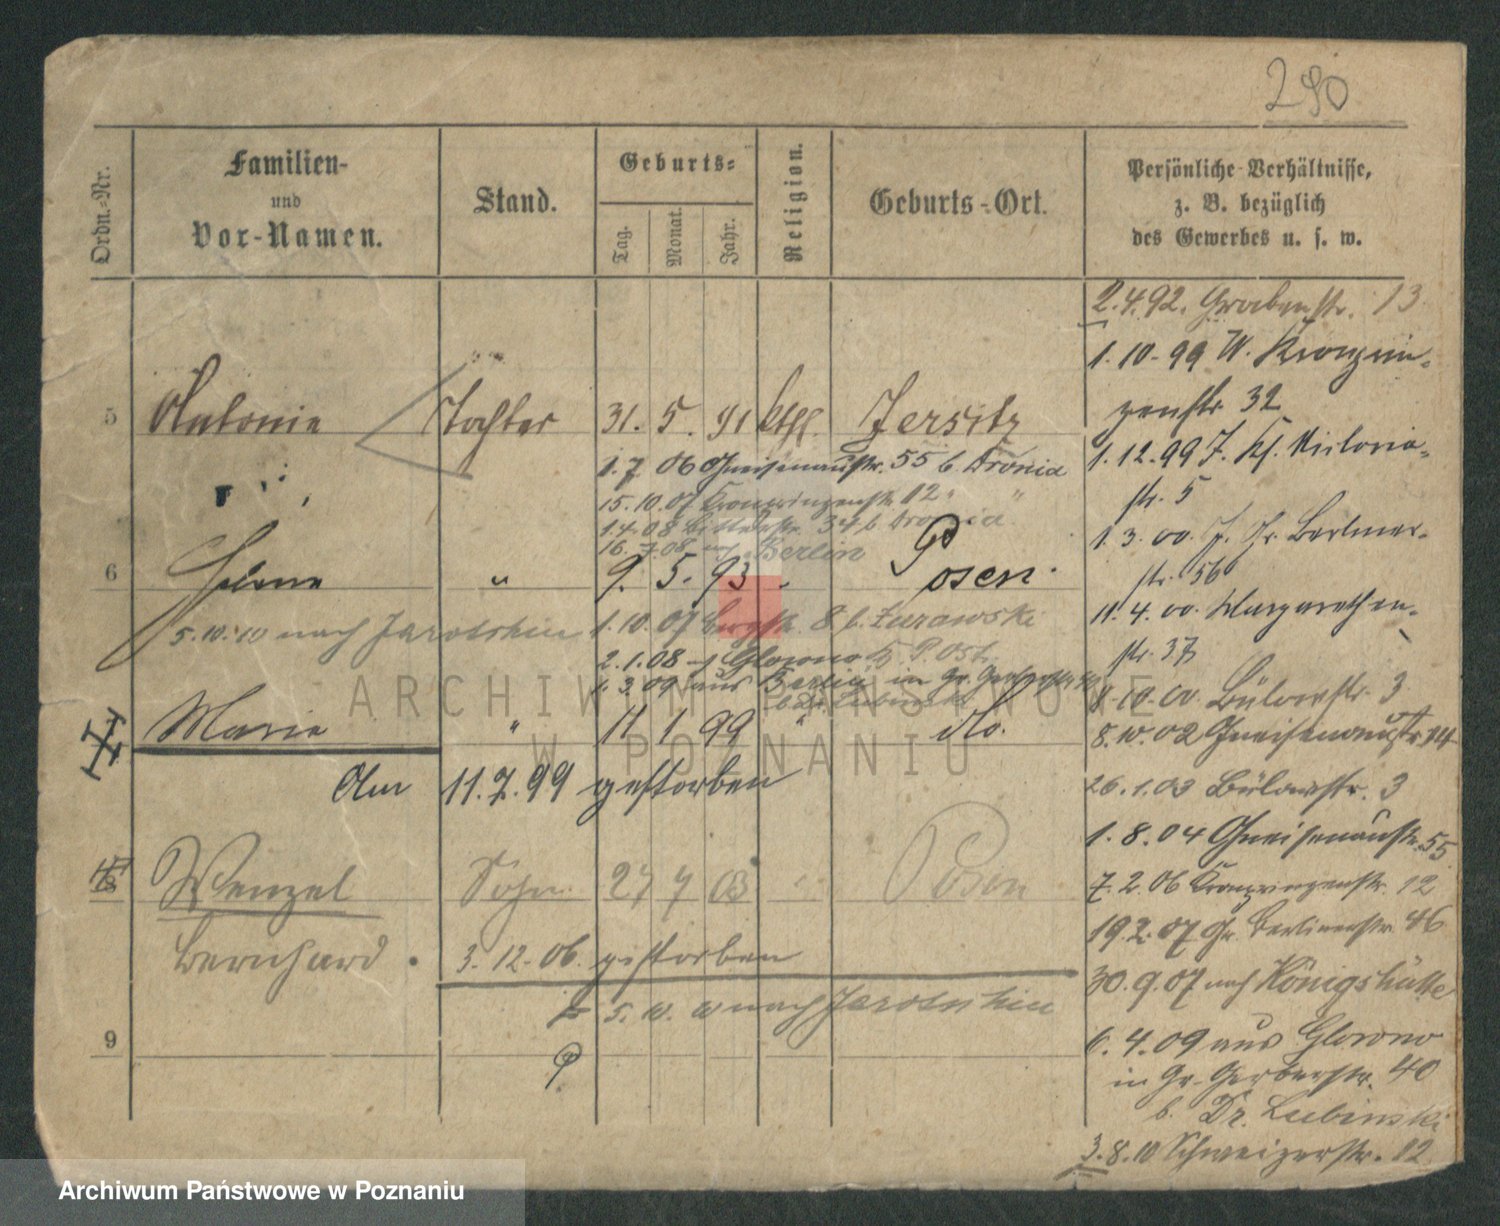 290
Ordn.-Nr.
Familien-
und
Vor-Namen.
Stand.
Geburts-
Tag.
Monat.
Jahr.
Religion.
Geburts-Ort.
Persönliche Verhältnisse,
z. B. bezüglich
des Gewerbes u. s. w.
5 Antonie Tochter 31. 5. 91 kthl. Jersitz
1. 7. 06 Gneisenaustr. 55 b. Dronia
15. 10. 07 Kronprinzenstr. 12 " "
14. 08 34 b. Dronia
16. 7. 08 nach Berlin
6 Helene " 9. 5. 93 " Posen.
5. 10. 10 nach Jarotschin
1. 10. 07 Bergstr. 8 b. Zurawski
2. 1. 08 Glowno P. Ost.
1. 3. 09 aus Berlin in Gr. Gerberstr. 40
b. Dr. Lubinski
Marie " 11. 1. 99 " do.
Am 11. 7. 99 gestorben
8 Wenzel Sohn 27 9 03 " Posen
Bernhard.
3. 12. 06. gestorben
5. 10. 10 nach Jarotschin
9
2. 4. 92. Grabenstr. 13
1. 10. 99 W. Kronprin-
zenstr. 32
1. 12. 99 J. Kl. Victoria-
str. 5
1. 3. 00. J. Gr. Berliner-
str. 56
11. 4. 00. Margarethen-
str. 37
8. 10. 00. Bülowstr. 3
8. 10. 02 Gneisenaustr. 14
26. 1. 03 Bülowstr. 3
1. 8. 04 Gneisenaustr. 55
7. 2. 06 Kronprinzenstr. 12
19. 2. 07 Gr. Berlinerstr. 46
30. 9. 07 nach Königshütte
6. 4. 09 aus Glowno
in Gr. Gerberstr. 40
b. Dr. Lubinski
3. 8. 10 Schweizerstr. 12
ARCHIWUM PAŃSTWOWE
W POZNANIU
Archiwum Państwowe w Poznaniu